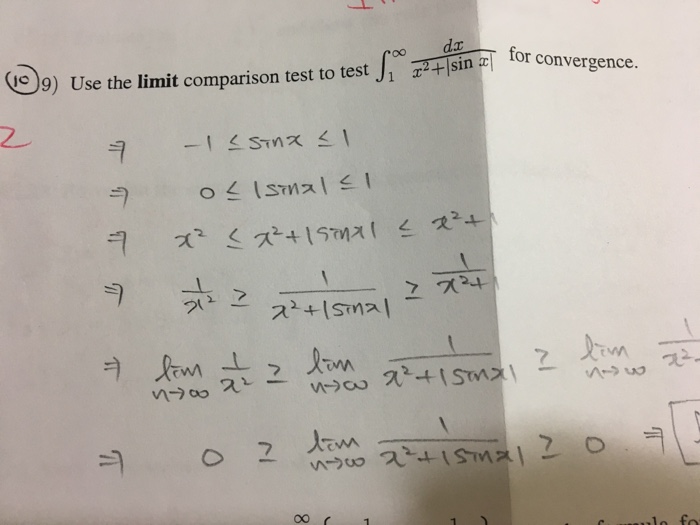 (10) 9) Use the limit comparison test to test ∫₁^∞ dx / (x² + |sin x|) for convergence.
2
⇒ -1 ≤ sinx ≤ 1
⇒ 0 ≤ |sinx| ≤ 1
⇒ x² ≤ x² + |sinx| ≤ x² + 1
⇒ 1/x² ≥ 1/(x² + |sinx|) ≥ 1/(x² + 1
⇒ lim n→∞ 1/x² ≥ lim n→∞ 1/(x² + |sinx|) ≥ lim n→∞ 1/x²
⇒ 0 ≥ lim n→∞ 1/(x² + |sinx|) ≥ 0 ⇒